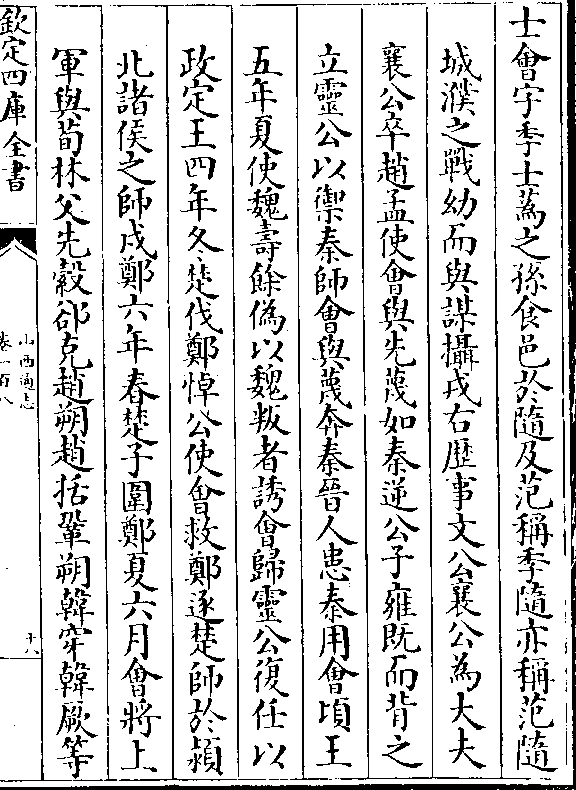 士會字季士蒍之孫食邑於隨及范稱季隨亦稱范隨
城濮之戰幼而與謀攝戎右歴事文公襄公為大夫
襄公卒趙孟使會與先蔑如秦逆公子雍既而背之
立靈公以禦秦師會與蔑奔秦晉人患秦用會頃王
五年夏使魏壽餘偽以魏叛者誘會歸靈公復任以
政定王四年冬楚伐鄭悼公使會救鄭逐楚師於潁
北諸侯之師戍鄭六年春楚子圍鄭夏六月會將上
軍與荀林父先縠郤克趙朔趙括鞏朔韓穿韓厥等
欽定四庫全書
山西通志
卷一百八
十八